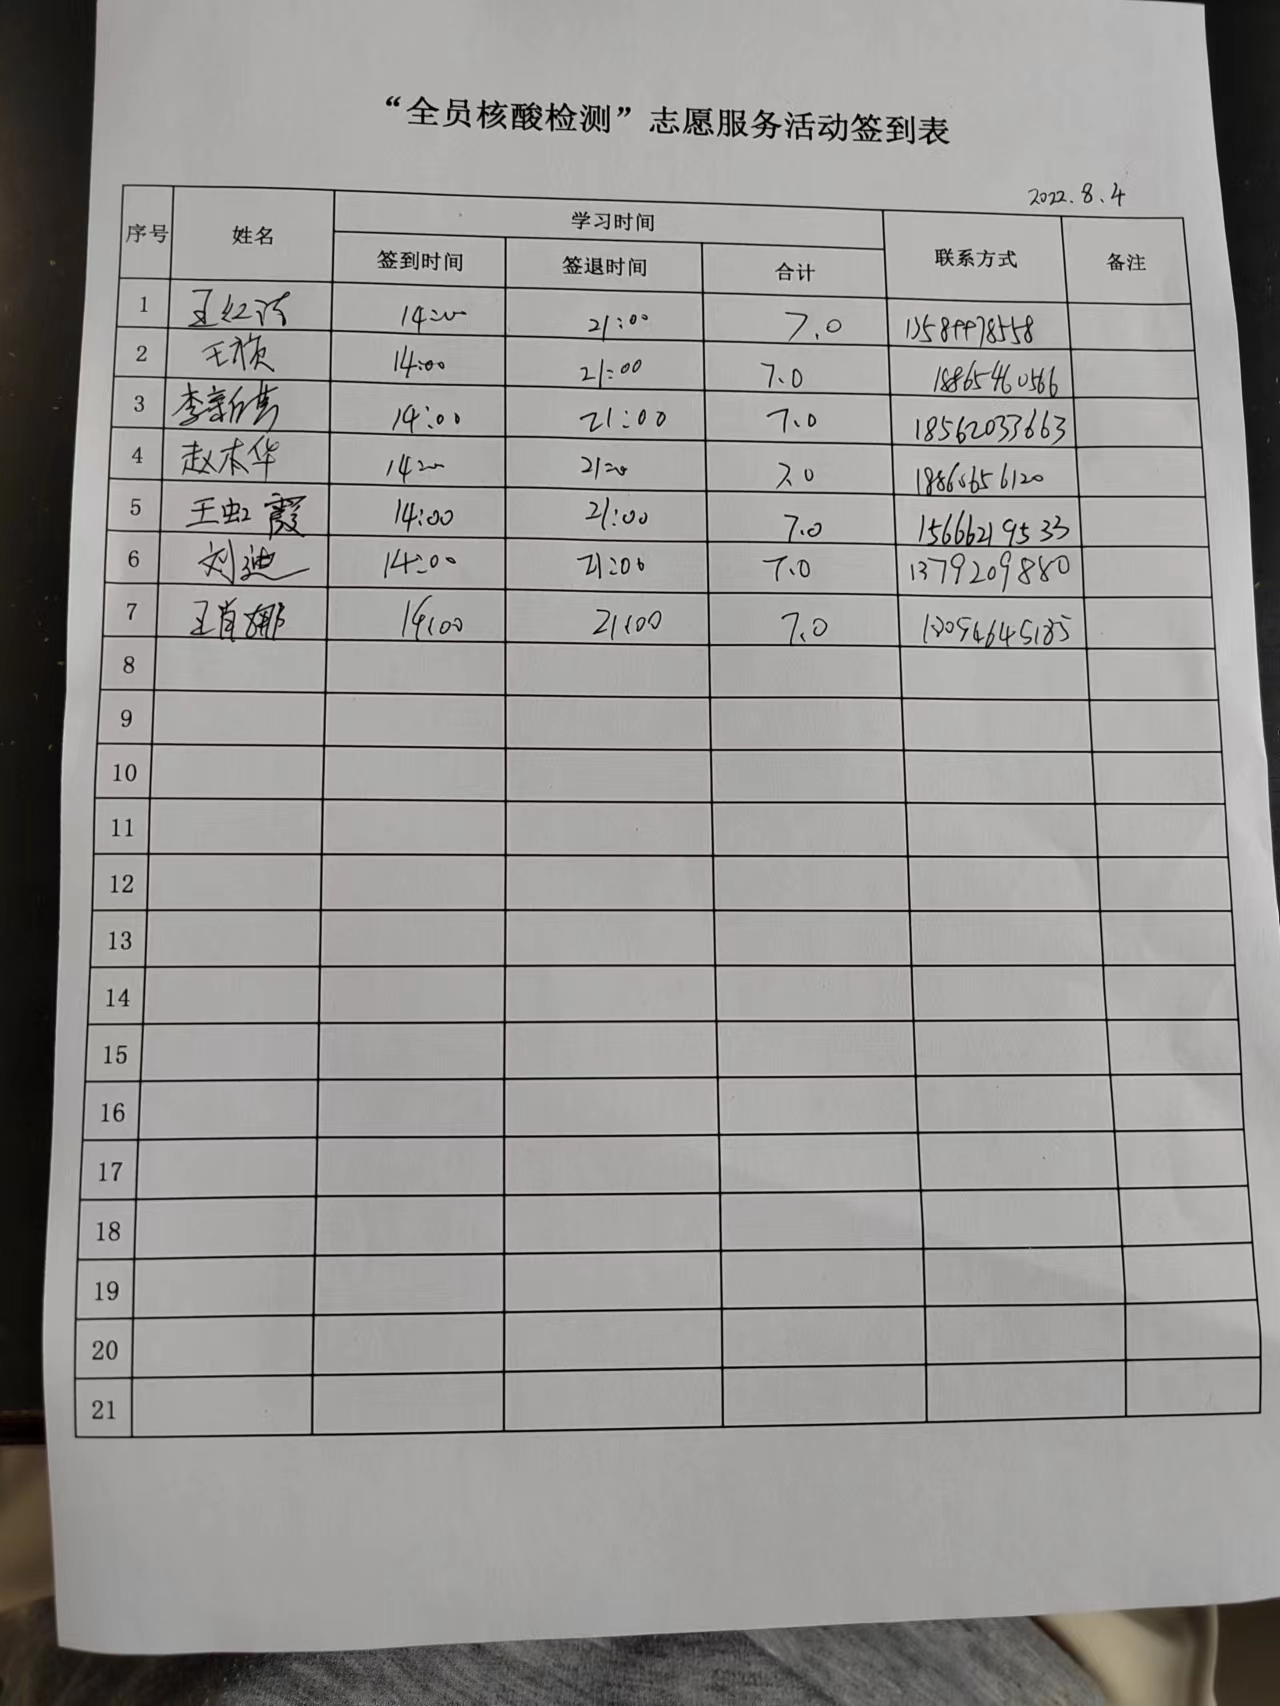 “全员核酸检测”志愿服务活动签到表
2022.8.4
序号 姓名 学习时间 联系方式 备注
签到时间 签退时间 合计
1 14:00 21:00 7.0
2 14:00 21:00 7.0 18865460566
3 14:00 21:00 7.0 18562033663
4 赵本华 14:00 21:00 7.0 18866656120
5 王虹霞 14:00 21:00 7.0 15666219533
6 刘迪 14:00 21:00 7.0 1379209880
7 王肖娜 14:00 21:00 7.0
8
9
10
11
12
13
14
15
16
17
18
19
20
21